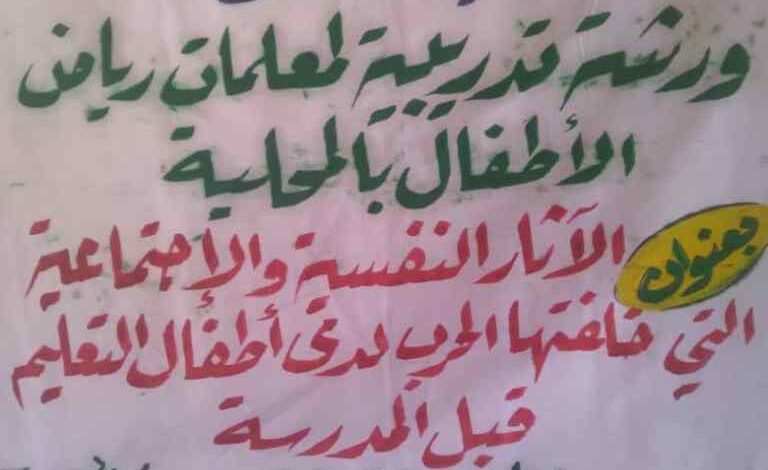 ورشة تدريبية لمعلمات رياض
الأطفال بالمحلية
بعنوان الآثار النفسية والأجتماعية
التي خلفتها الحرب لدى أطفال التعليم
قبل المدرسة